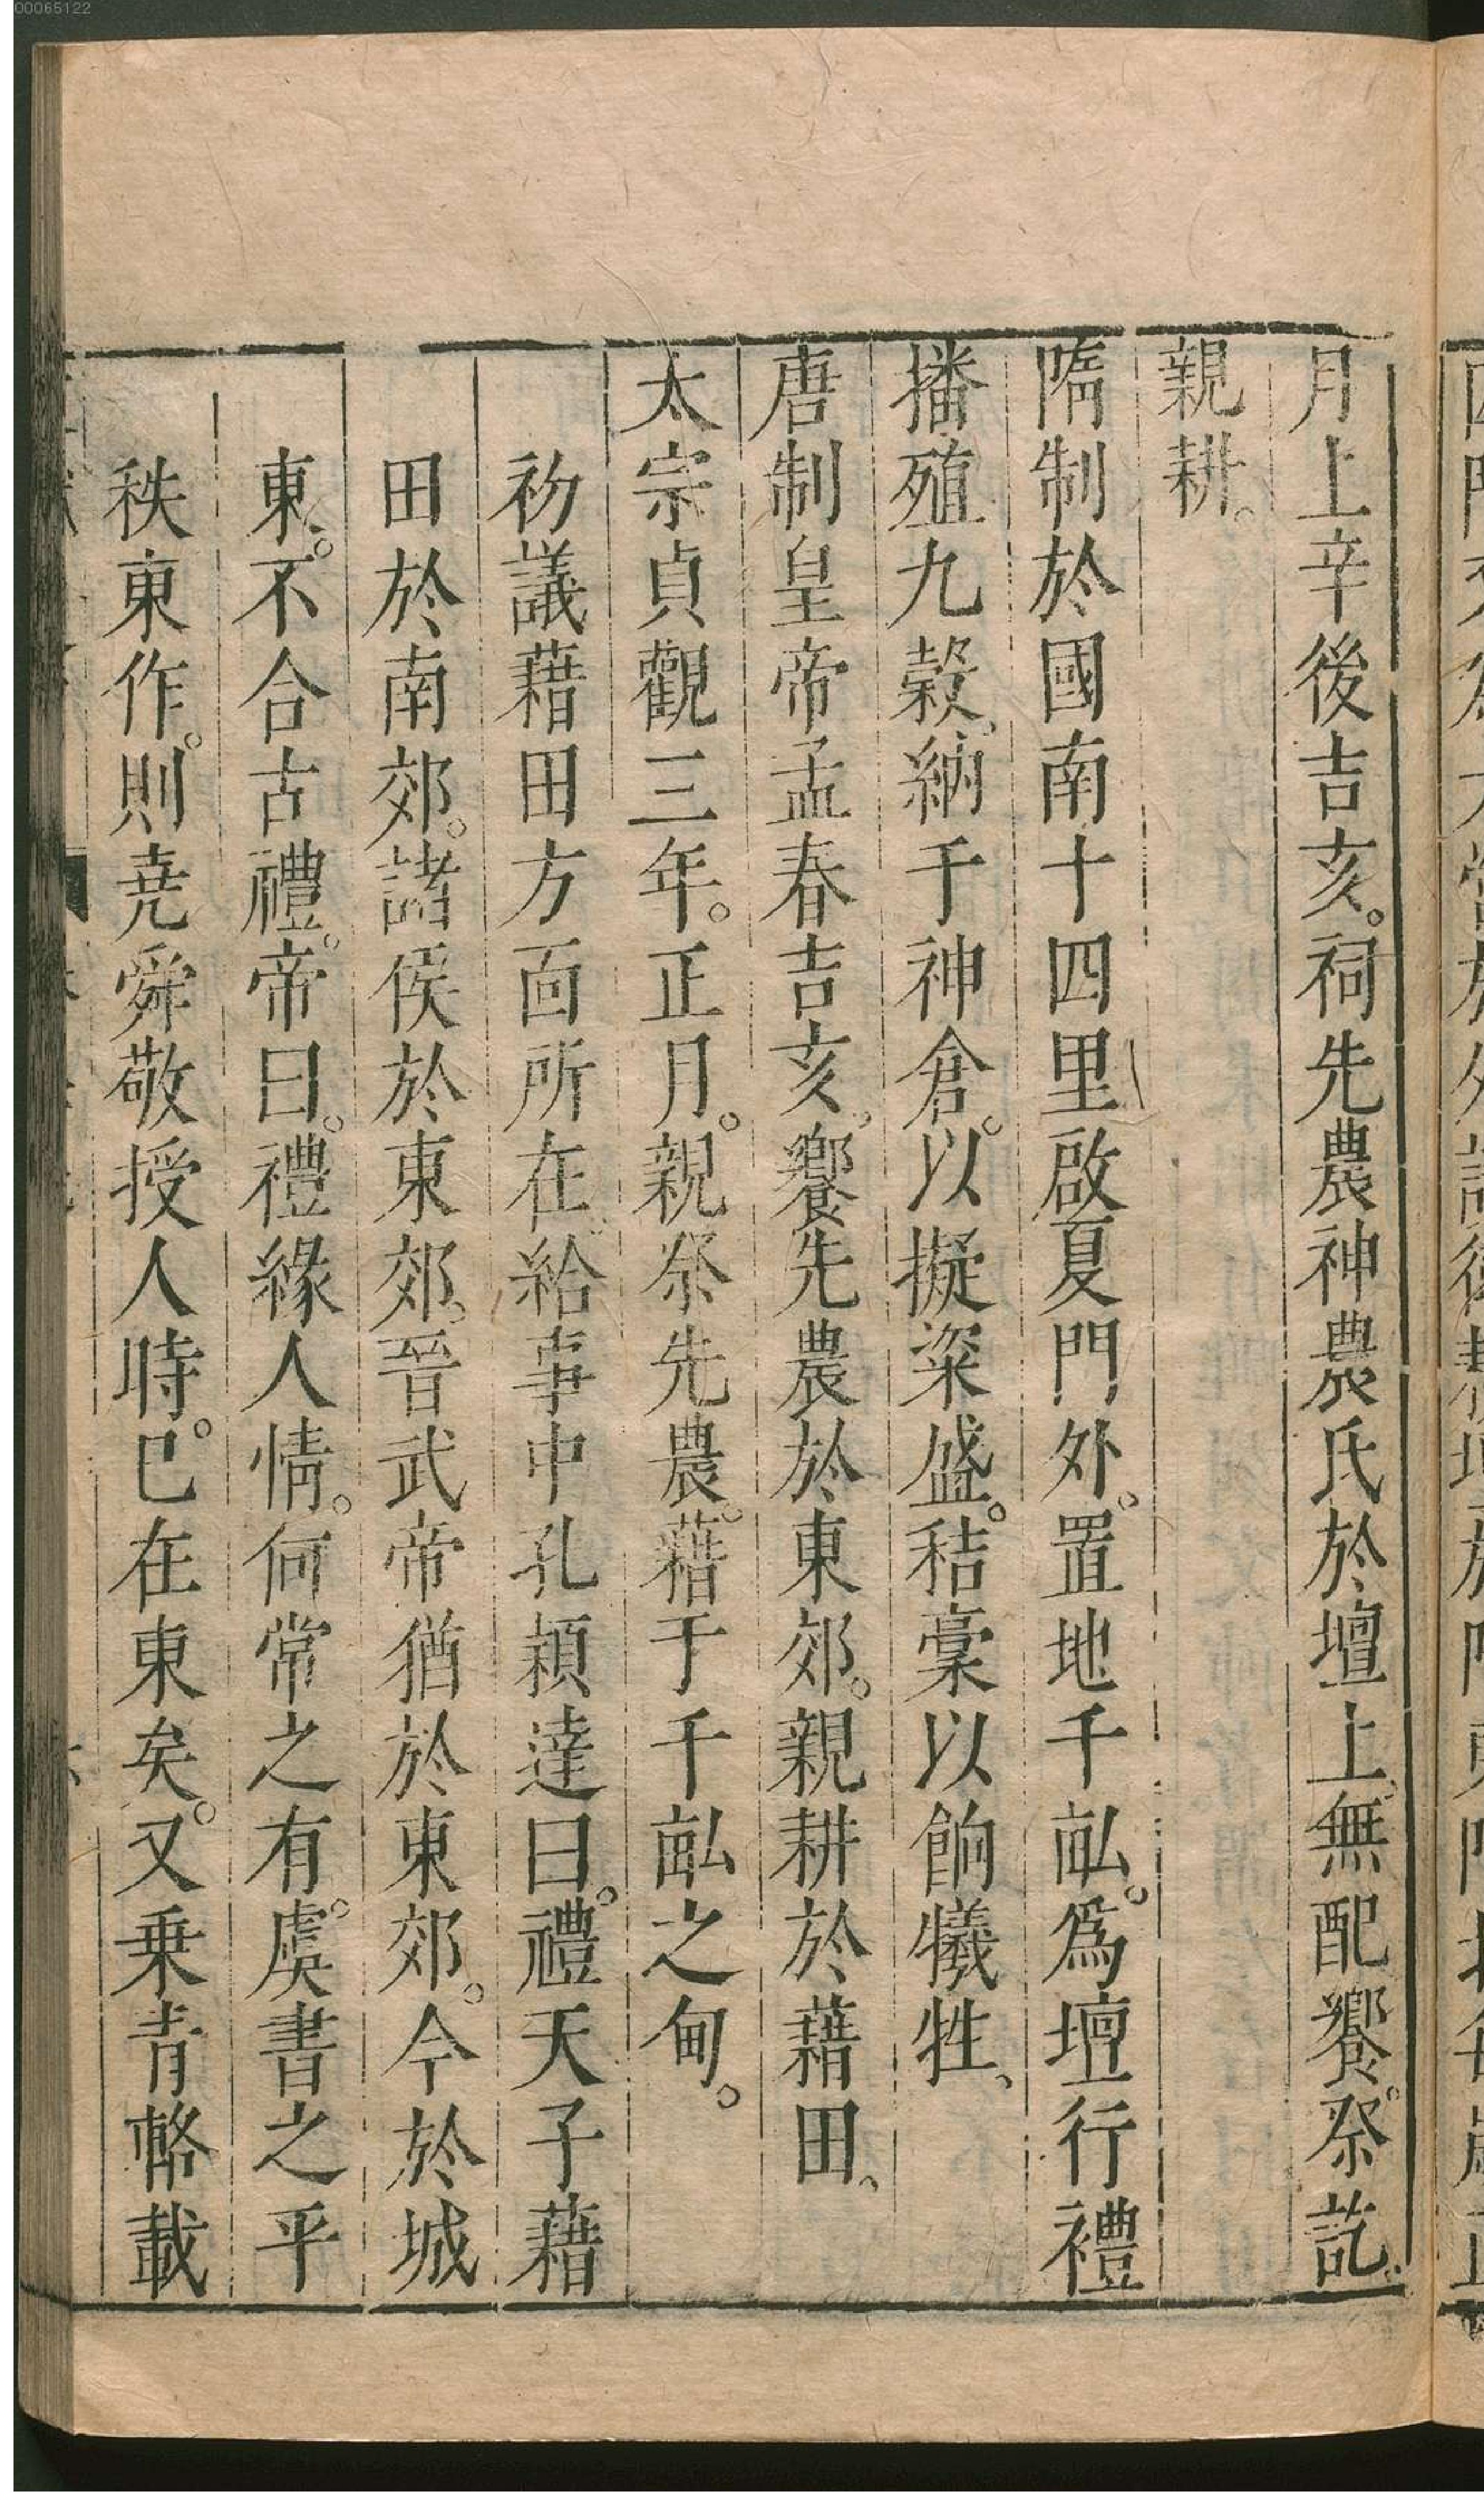 00065122
月上辛後吉亥。祠先農神農氏於壇上、無配饗。祭訖。
親耕。
隋制於國南十四里啟夏門外。置地千畝。爲壇行禮
播殖九穀、納于神倉。以擬粢盛。秸稾以餉犧牲、
唐制皇帝孟春吉亥、饗先農於東郊。親耕於藉田、
太宗貞觀三年。正月。親祭先農。藉于千畝之甸。
初議藉田方面所在。給事中孔頴達曰。禮天子藉
田於南郊。諸侯於東郊。晉武帝猶於東郊。今於城
東。不合古禮。帝曰。禮緣人情。何常之有。虞書之平
秩東作。則尭舜敬授人時。巳在東矣。又乗青輅載